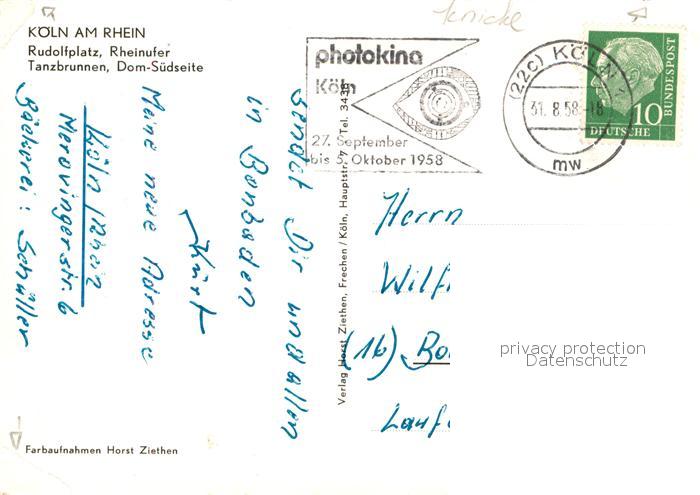 knicke
KÖLN AM RHEIN
Rudolfplatz, Rheinufer
Tanzbrunnen, Dom-Südseite
photokina
Köln
27. September
bis 5. Oktober 1958
(22c) KÖLN
31.8.58.-18
mw
10
DEUTSCHE
BUNDESPOST
sendet Dir und allen
in Bonbaden
Kurt
Meine neue Adresse
Köln/Rhein
Merovingerstr. 6
Bäckerei: Schüller
Verlag Horst Ziethen, Frechen/Köln, Hauptstr. 7 Tel. 3438
Herrn
Wilf
(16) Bo
Lauf
privacy protection
Datenschutz
Farbaufnahmen Horst Ziethen